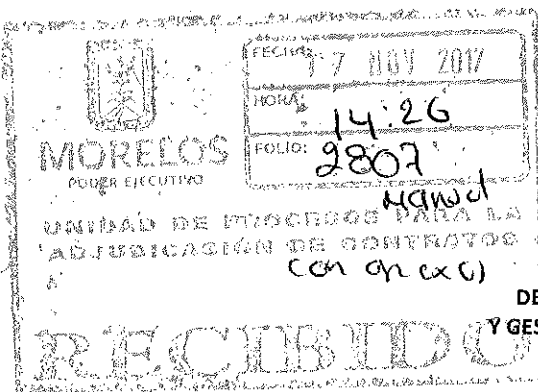 FECHA: 17 NOV 2017
HORA: 14:26
FOLIO: 2807
MORELOS
PODER EJECUTIVO
Manuel
UNIDAD DE PROCESOS PARA LA
ADJUDICACIÓN DE CONTRATOS
con anexo)
DE
Y GES
RECIBIDO